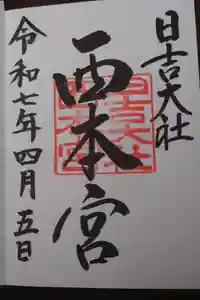 日吉大社
西本宮
令和七年四月五日